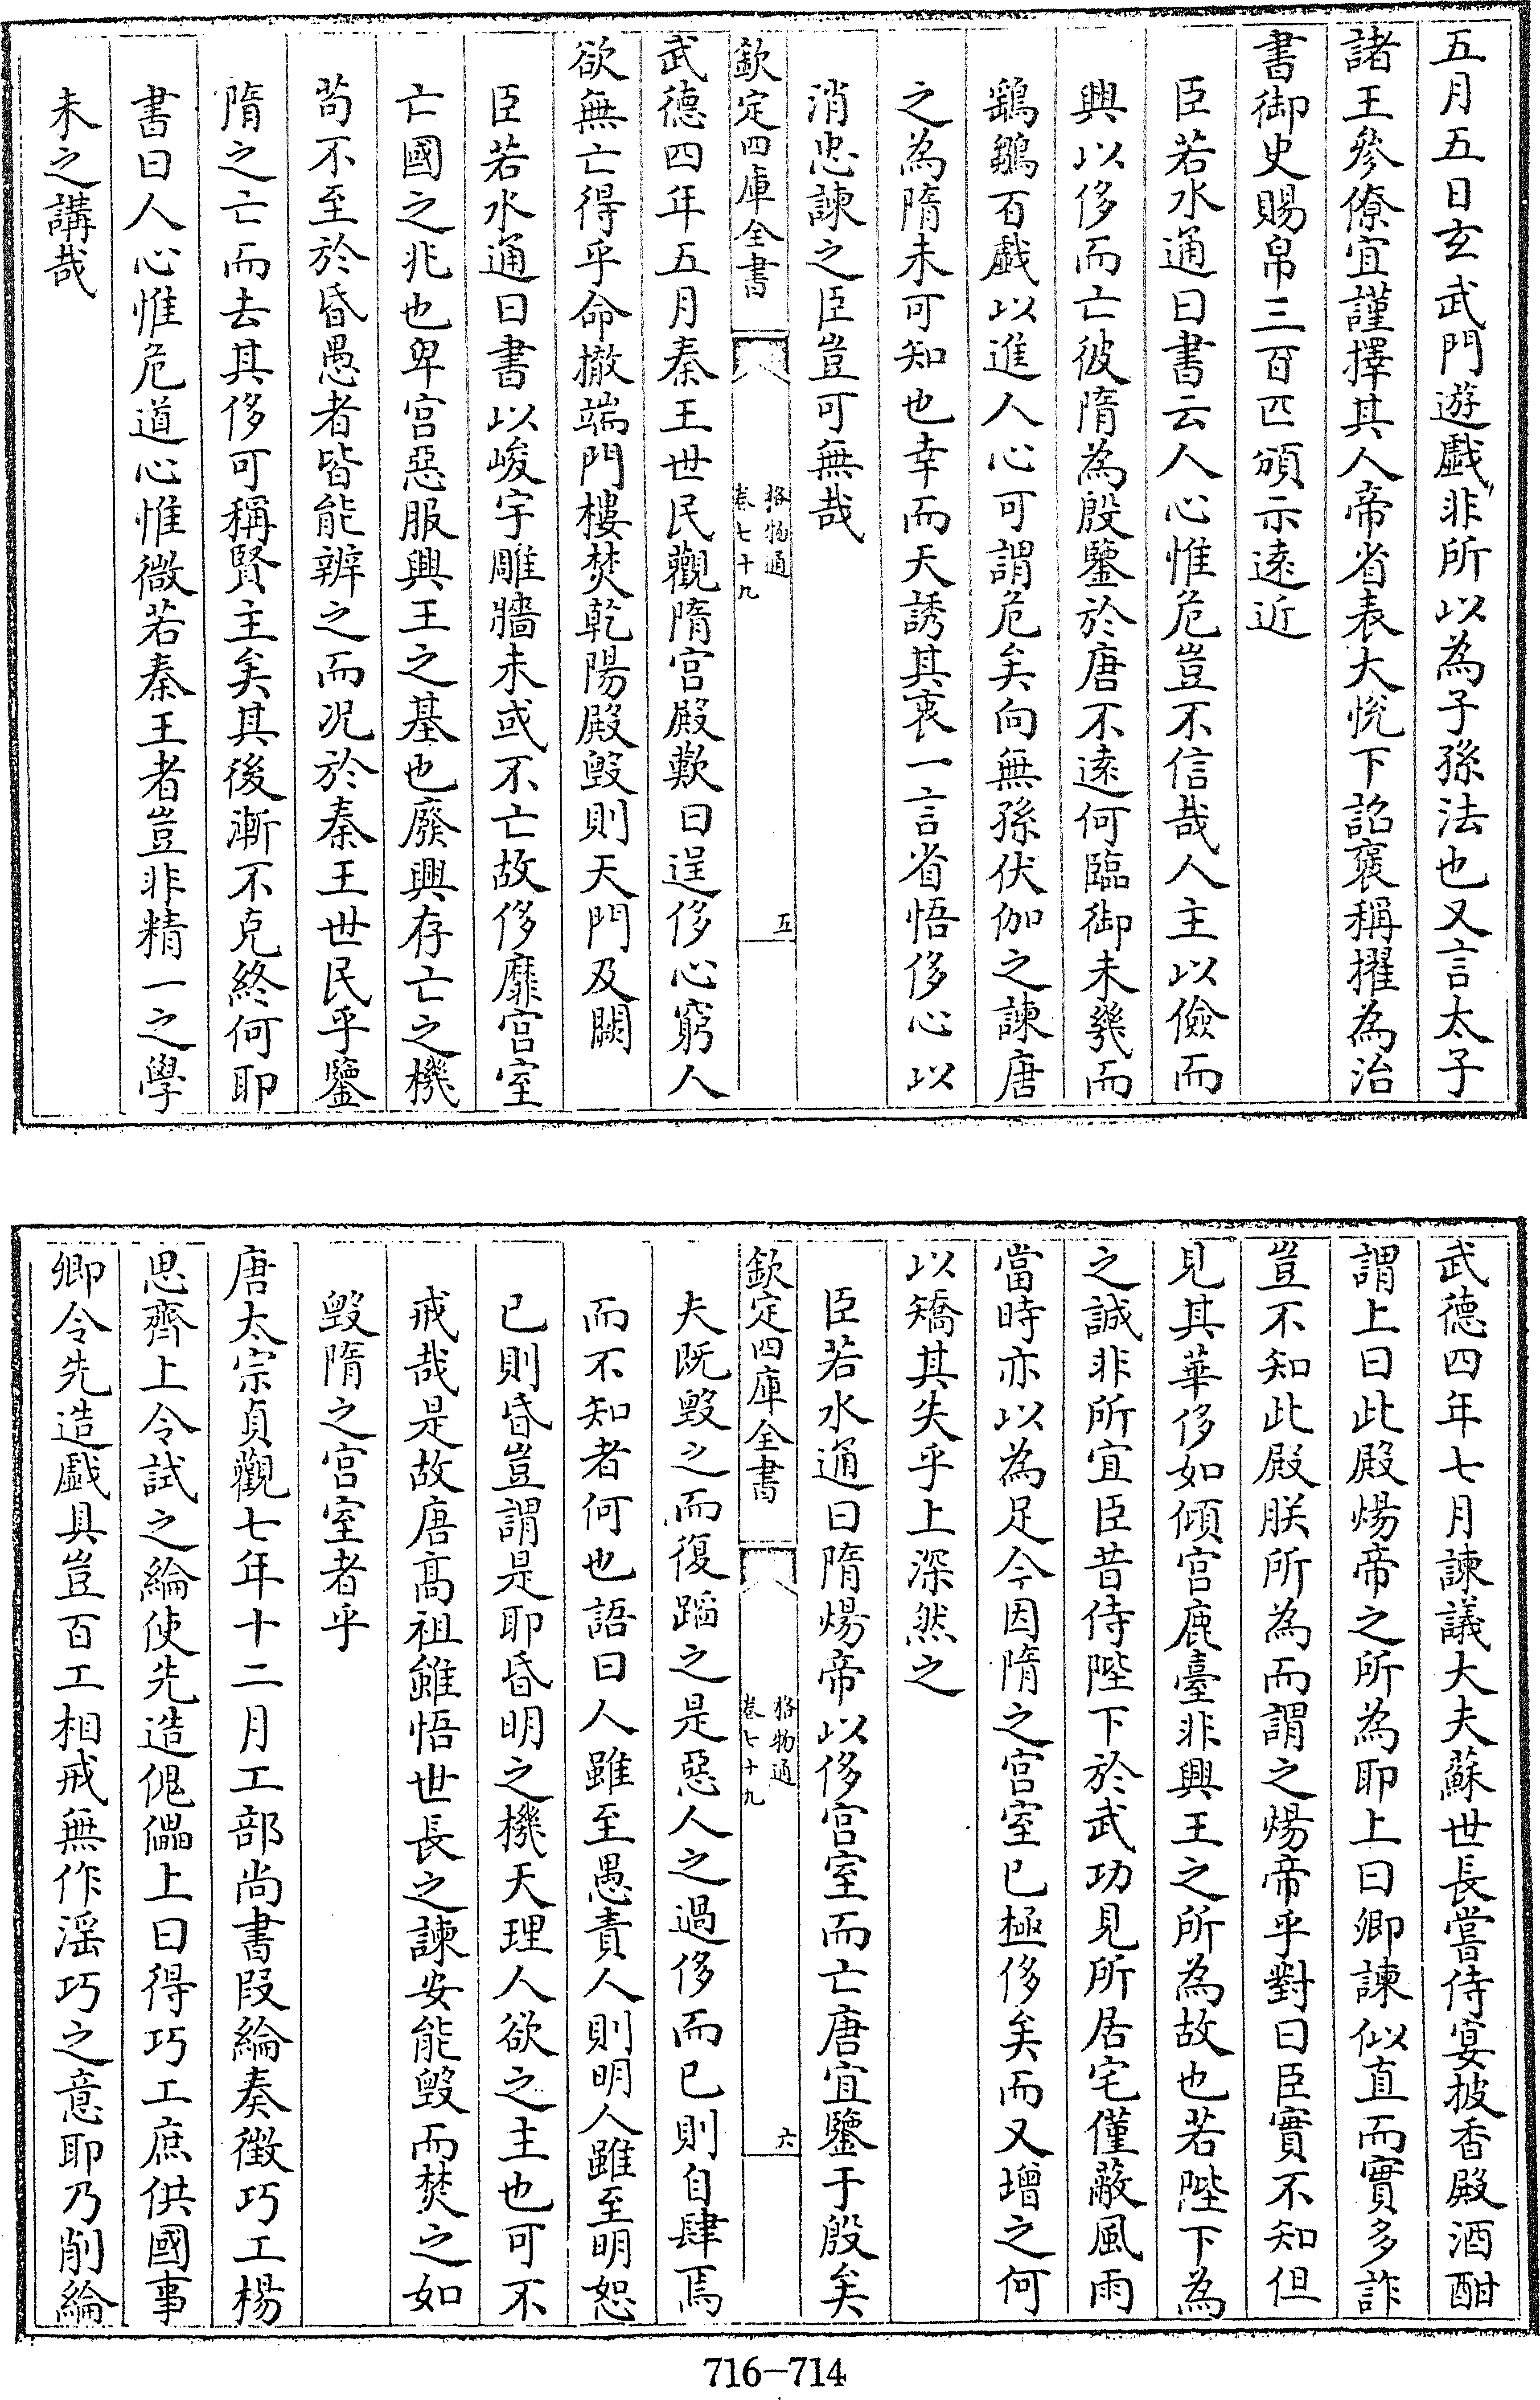 五月五日玄武門遊戲非所以為子孫法也又言太子
諸王參僚宜謹擇其人帝省表大悅下詔褒稱擢為治
書御史賜帛三百匹頒示遠近
臣若水通曰書云人心惟危豈不信哉人主以儉而
興以侈而亡彼隋為殷鑒於唐不遠何臨御未幾而
鷂鶵百戲以進人心可謂危矣向無孫伏伽之諫唐
之為隋未可知也幸而天誘其衷一言省悟侈心以
消忠諫之臣豈可無哉
欽定四庫全書
格物通
卷七十九
五
武德四年五月秦王世民觀隋宫殿歎曰逞侈心窮人
欲無亡得乎命撤端門樓焚乾陽殿毀則天門及闕
臣若水通曰書以峻宇雕牆未或不亡故侈靡宫室
亡國之兆也卑宫惡服興王之基也廢興存亡之機
苟不至於昏愚者皆能辨之而况於秦王世民乎鑒
隋之亡而去其侈可稱賢主矣其後漸不克終何耶
書曰人心惟危道心惟微若秦王者豈非精一之學
未之講哉
武德四年七月諫議大夫蘇世長嘗侍宴披香殿酒酣
謂上曰此殿煬帝之所為耶上曰卿諫似直而實多詐
豈不知此殿朕所為而謂之煬帝乎對曰臣實不知但
見其華侈如傾宫鹿臺非興王之所為故也若陛下為
之誠非所宜臣昔侍陛下於武功見所居宅僅蔽風雨
當時亦以為足今因隋之宫室已極侈矣而又增之何
以矯其失乎上深然之
臣若水通曰隋煬帝以侈宫室而亡唐宜鑒于殷矣
欽定四庫全書
格物通
卷七十九
六
夫既毀之而復蹈之是惡人之過侈而已則自肆焉
而不知者何也語曰人雖至愚責人則明人雖至明恕
已則昏豈謂是耶昏明之機天理人欲之主也可不
戒哉是故唐髙祖雖悟世長之諫安能毀而焚之如
毀隋之宫室者乎
唐太宗貞觀七年十二月工部尚書叚綸奏徵巧工楊
思齊上令試之綸使先造傀儡上曰得巧工庶供國事
卿令先造戲具豈百工相戒無作滛巧之意耶乃削綸
716-714